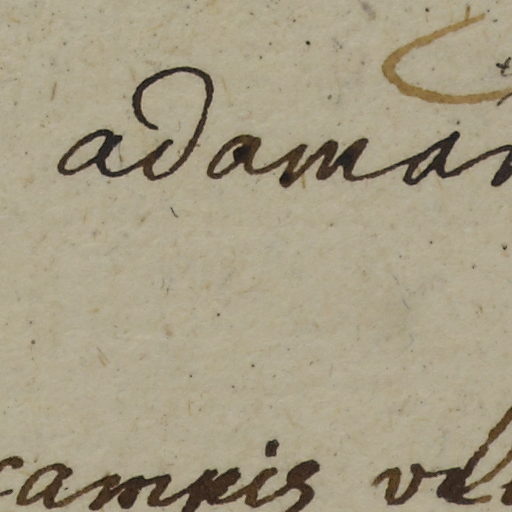 adaman
campis vel